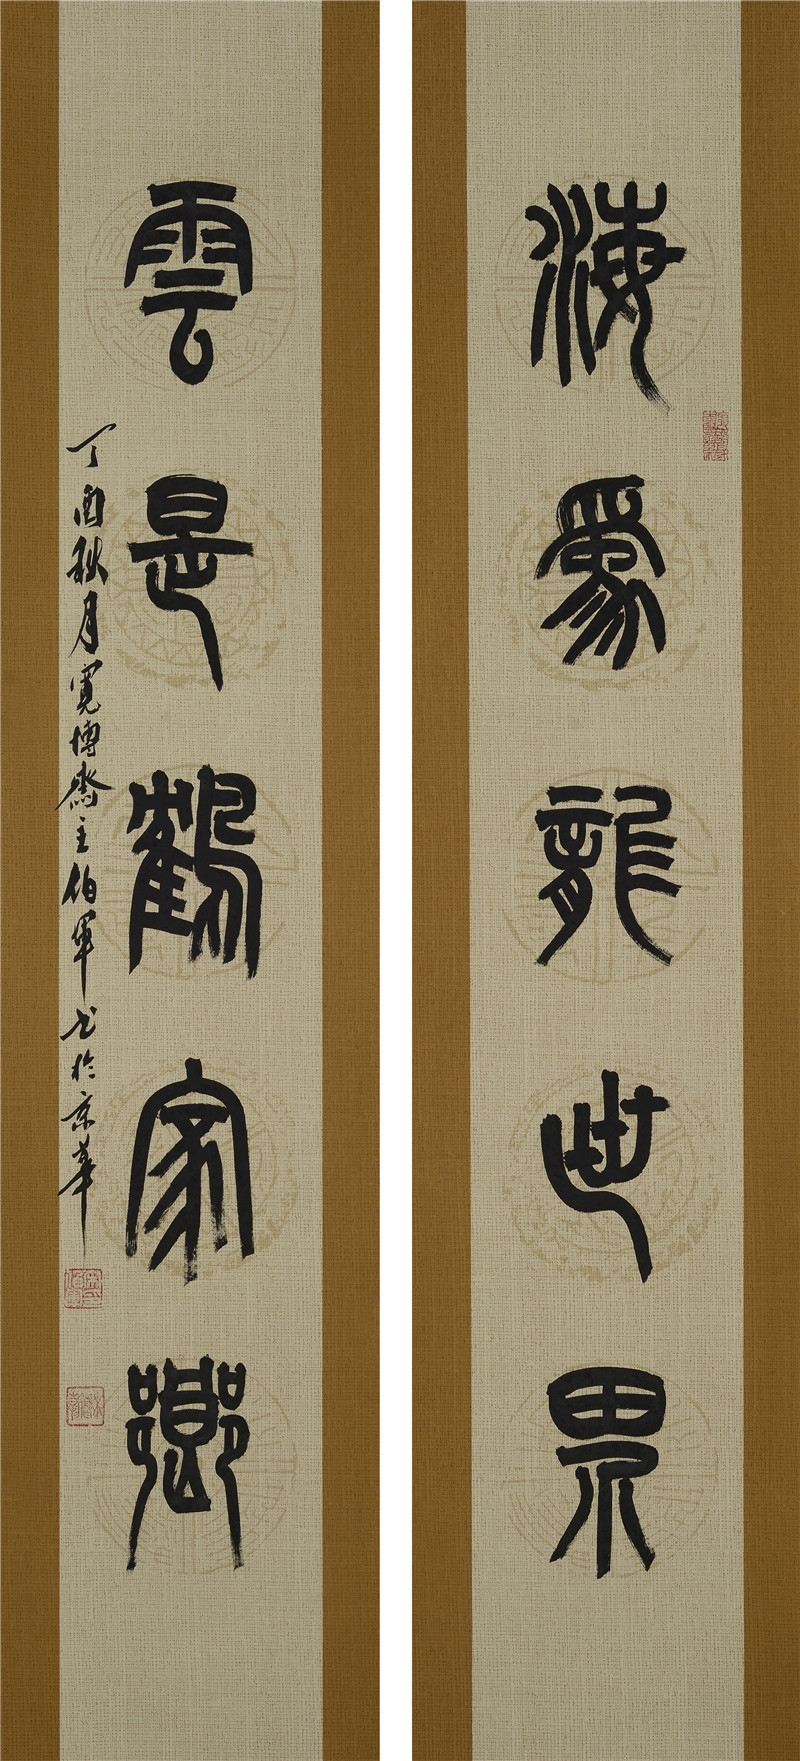 海為龍世界
雲是鶴家鄉
丁酉秋月寬博齋主伯軍書於京華